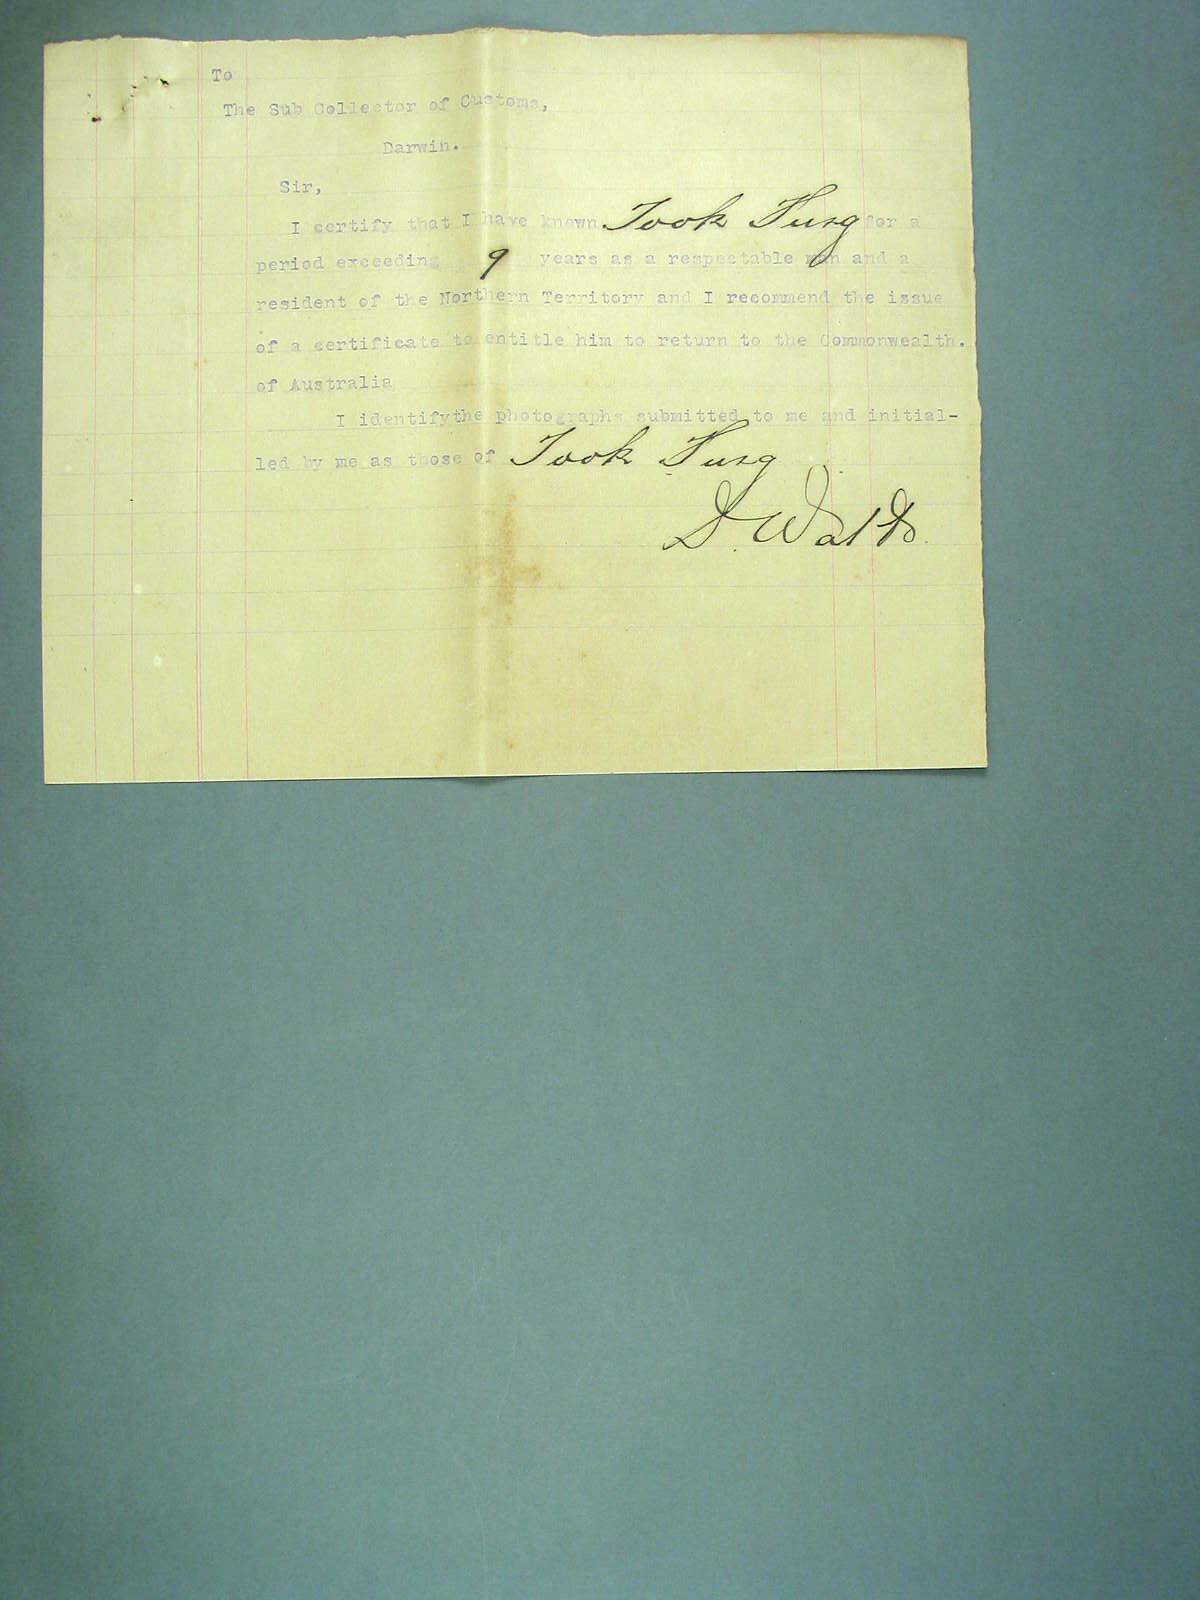 To
The Sub Collector of Customs,
Darwin.
Sir,
I certify that I have known Took Fung for a
period exceeding 9 years as a respectable man and a
resident of the Northern Territory and I recommend the issue
of a certificate to entitle him to return to the Commonwealth.
of Australia
I identifythe photographs submitted to me and initial-
led by me as those of Took Fung
D. Watts